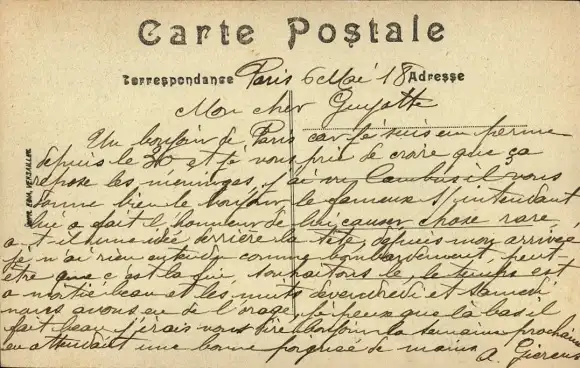 Carte Postale
Correspondance
Adresse
Paris 6 Mai 18
Mon cher Guyotte
Un bonjour de Paris car je suis en perme
depuis le 30 et je vous prie de croire que ça
repose les méninges, j'ai vu il vous
donne bien le bonjour le fameux S/Intendant
lui a fait l'honneur de lui causer chose rare
a t il une idée derrière la tête, depuis mon arrivée
je n'ai rien comme bombardement, peut-
être que c'est la souhaitons le, le temps est
a moitié beau et les nuits de vendredi et Samedi
nous avons eu de l'orage, si peux que là bas il
fait beau j'irais vous dire bonjour la semaine prochaine
en attendant une bonne poignée de mains
EDIA, VERSAILLES